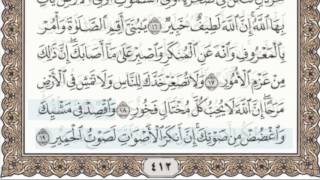 بِهَا ٱللَّهُ إِنَّ ٱللَّهَ لَطِيفٌ خَبِيرٌ ١٦ يَٰبُنَيَّ أَقِمِ ٱلصَّلَوٰةَ وَأْمُرْ
بِٱلْمَعْرُوفِ وَٱنْهَ عَنِ ٱلْمُنكَرِ وَٱصْبِرْ عَلَىٰ مَآ أَصَابَكَ إِنَّ ذَٰلِكَ
مِنْ عَزْمِ ٱلْأُمُورِ ١٧ وَلَا تُصَعِّرْ خَدَّكَ لِلنَّاسِ وَلَا تَمْشِ فِي ٱلْأَرْضِ
مَرَحًا إِنَّ ٱللَّهَ لَا يُحِبُّ كُلَّ مُخْتَالٍ فَخُورٍ ١٨ وَٱقْصِدْ فِي مَشْيِكَ
وَٱغْضُضْ مِن صَوْتِكَ إِنَّ أَنكَرَ ٱلْأَصْوَٰتِ لَصَوْتُ ٱلْحَمِيرِ ١٩
٤١٢